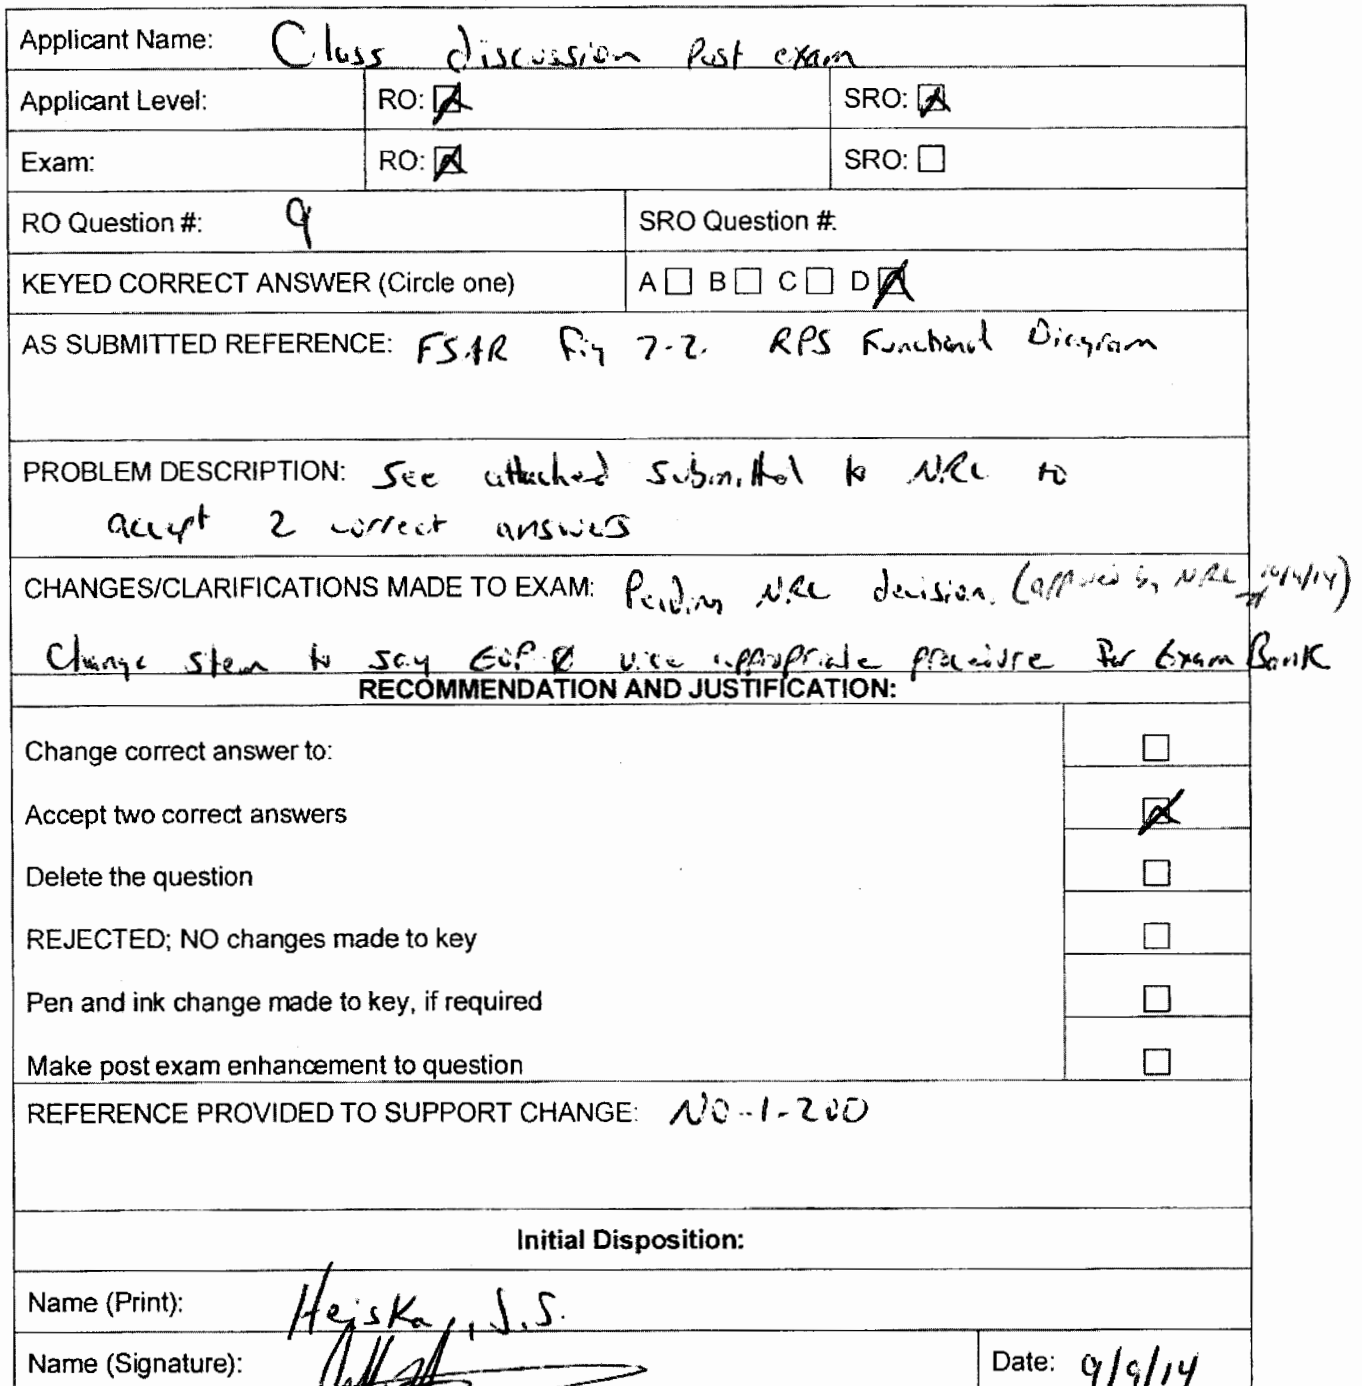 Applicant Name: Class discussion Post exam
Applicant Level: RO: ☒ SRO: ☒
Exam: RO: ☒ SRO: ☐
RO Question #: 9 SRO Question #:
KEYED CORRECT ANSWER (Circle one) A ☐ B ☐ C ☐ D ☒
AS SUBMITTED REFERENCE: FSAR Fig 7-2. RPS Functional Diagram
PROBLEM DESCRIPTION: See attached submittal to NRC to
accept 2 correct answers
CHANGES/CLARIFICATIONS MADE TO EXAM: Pending NRC decision. (approved by NRC 10/14)
Change stem to say EOP-0 vice appropriate procedure for Exam Bank
RECOMMENDATION AND JUSTIFICATION:
Change correct answer to: ☐
Accept two correct answers ☒
Delete the question ☐
REJECTED; NO changes made to key ☐
Pen and ink change made to key, if required ☐
Make post exam enhancement to question ☐
REFERENCE PROVIDED TO SUPPORT CHANGE: NO-1-200
Initial Disposition:
Name (Print): Hejska, J.S.
Name (Signature):
Date: 9/9/14